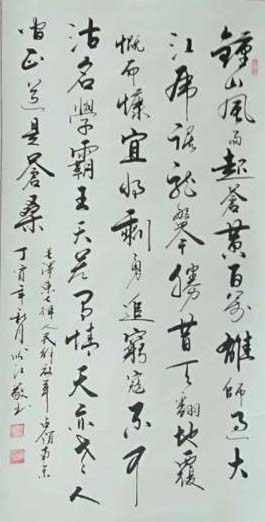 鍾山風雨起蒼黄百万雄師过大
江虎踞龙盤今勝昔天翻地覆
慨而慷宜将剩勇追窮寇不可
沽名學霸王天若有情天亦老人
间正道是蒼桑
毛澤東七律人民解放軍占領南京
丁亥年秋月